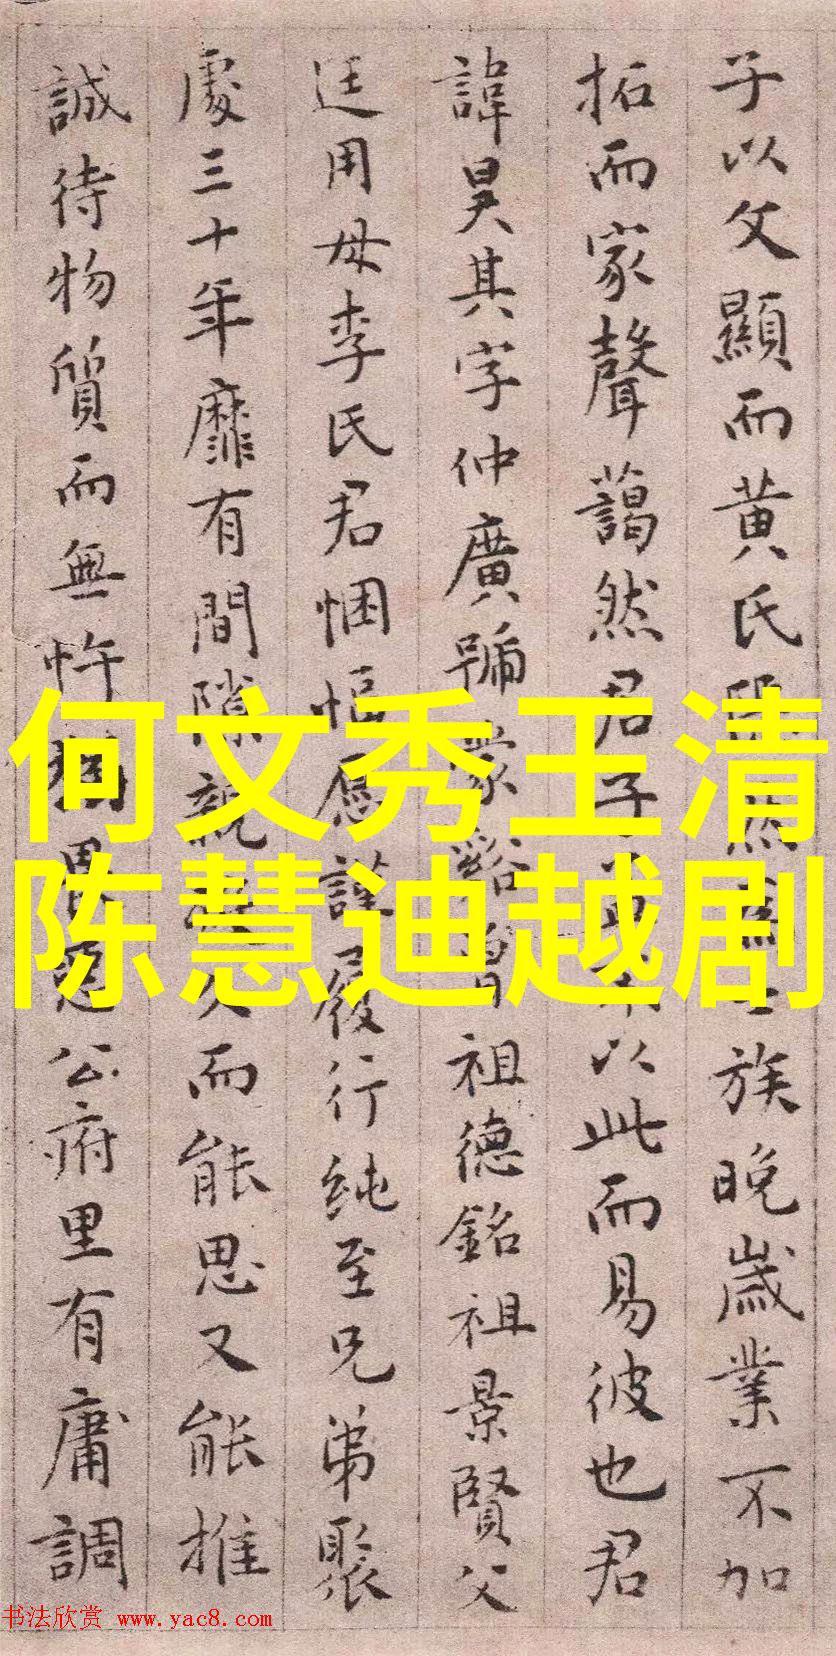 子以父顯而黄氏為士族晚歲業不加
拓而家聲藹然君子以此而易彼也君
諱昊其字仲廣號蒙谿曾祖德銘祖景賢父
廷用母李氏君悃愊愿謹履行純至兄弟聚
處三十年靡有間隙親久而能思又能推
誠待物質而無忤公府里有庸調
何文秀王清
陈慧迪越剧
书法欣赏 www.yac8.com